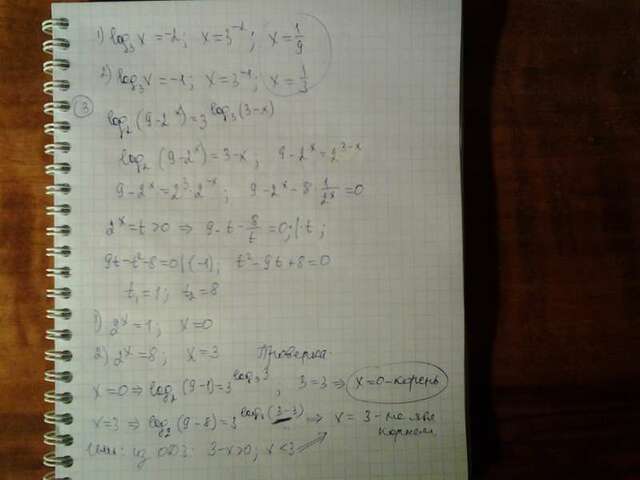 1) log₃x = -2; x = 3⁻²; x = 1/9
2) log₃x = -1; x = 3⁻¹; x = 1/3
③ log₂(9-2ˣ) = 3^(log₃(3-x))
log₂(9-2ˣ) = 3-x; 9-2ˣ = 2³⁻ˣ
9-2ˣ = 2³·2⁻ˣ; 9-2ˣ-8·1/2ˣ = 0
2ˣ = t > 0 ⇒ 9-t-8/t = 0; |·t;
9t-t²-8 = 0 |(-1); t²-9t+8 = 0
t₁ = 1; t₂ = 8
1) 2ˣ = 1; x = 0
2) 2ˣ = 8; x = 3 Проверка
x = 0 ⇒ log₂(9-1) = 3^(log₃3), 3 = 3 ⇒ x = 0 - корень
x = 3 ⇒ log₂(9-8) = 3^(log₃(3-3)) ⇒ x = 3 - не явл
корнем
Или: из ОДЗ: 3-x>0; x<3